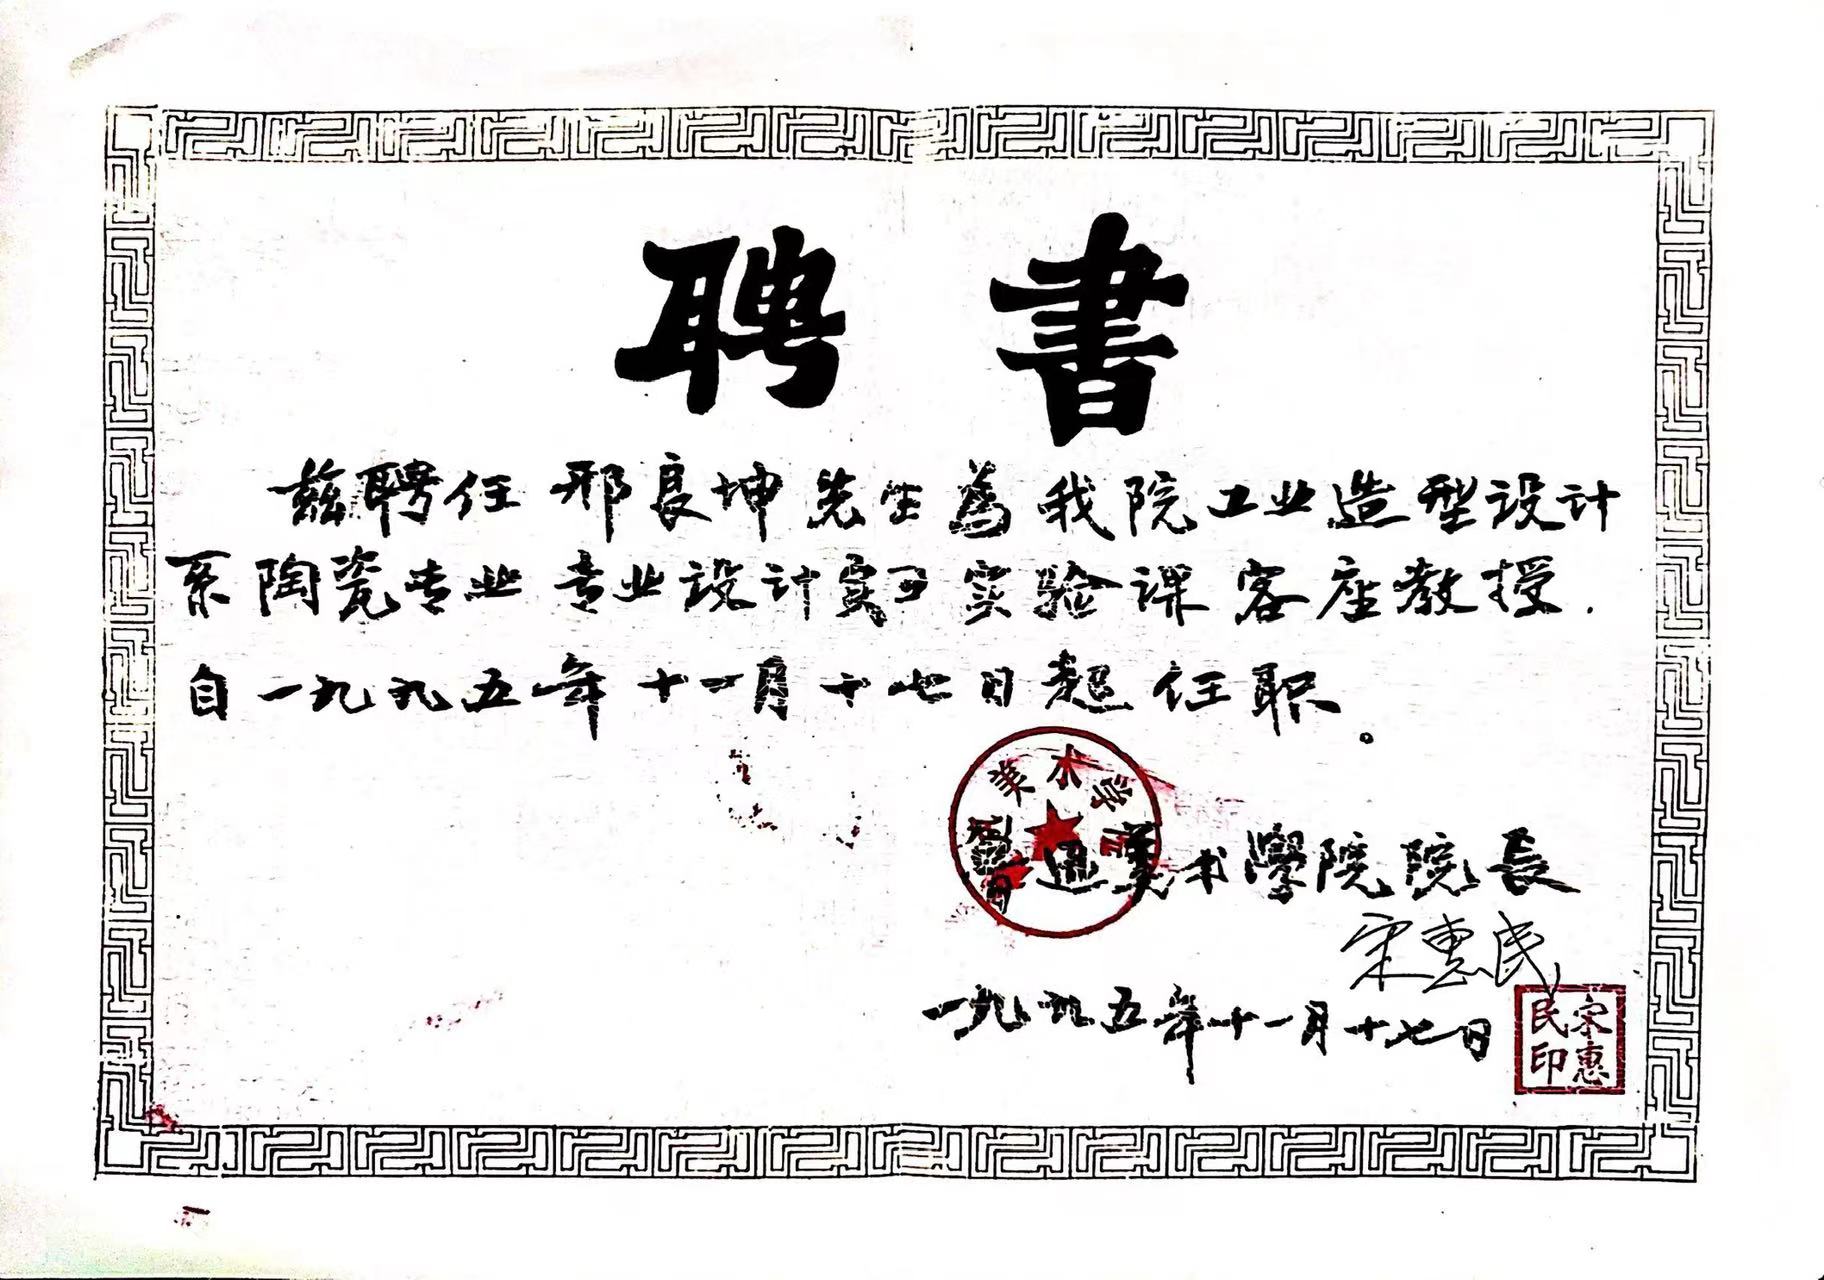 聘書
兹聘任邢良坤先生為我院工业造型设计
系陶瓷专业专业设计实习实验课客座教授.
自一九九五年十一月十七日起任职。
美术学
鲁迅美术學院院長
宋惠民
一九九五年十一月十七日
宋惠民印